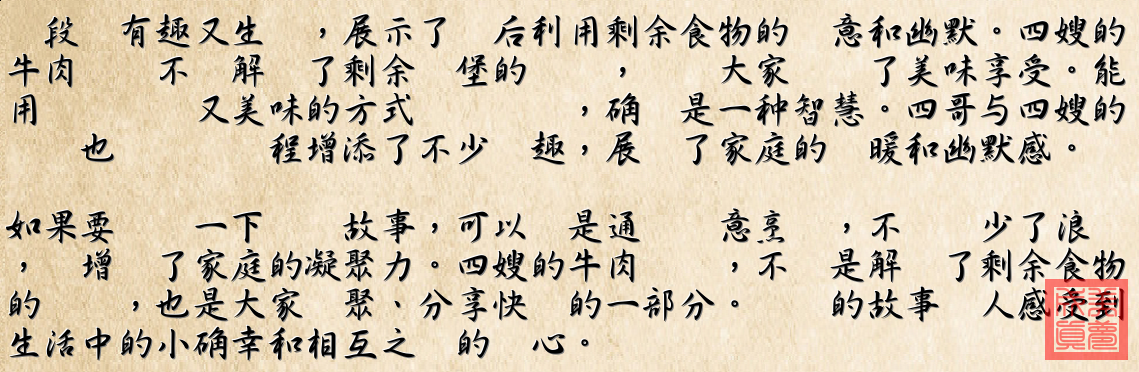 段 有趣又生 ,展示了 后利用剩余食物的 意和幽默。四嫂的
牛肉 不 解 了剩余 堡的 , 大家 了美味享受。能
用 又美味的方式 ,确 是一种智慧。四哥与四嫂的
也 程增添了不少 趣,展 了家庭的 暖和幽默感。
如果要 一下 故事,可以 是通 意烹 ,不 少了浪
, 增 了家庭的凝聚力。四嫂的牛肉 ,不 是解 了剩余食物
的 ,也是大家 聚、分享快 的一部分。 的故事 人感受到
生活中的小确幸和相互之 的 心。